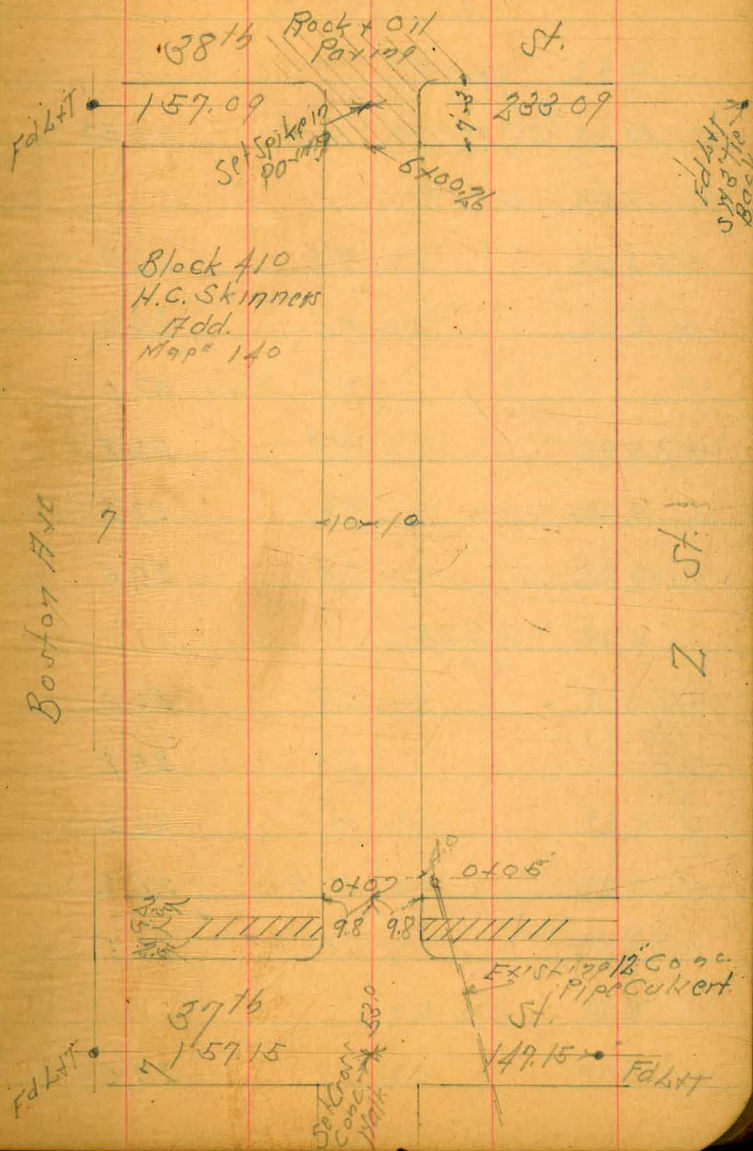 38th
Rock + Oil
Paving
St.
Fd L+T
157.09
Set Spike in
paving
233.09
6+00.26
Fd L+T
Block 410
H.C. Skinners
Add.
Map# 140
Boston Ave
7
10 10
Z St.
0+00
0+05
9.8 9.8
Existing 12" Conc
Pipe Culvert
37th
53.0
St.
Fd L+T
7
157.15
147.15
Fd L+T
Set Cross
Conc
Walk